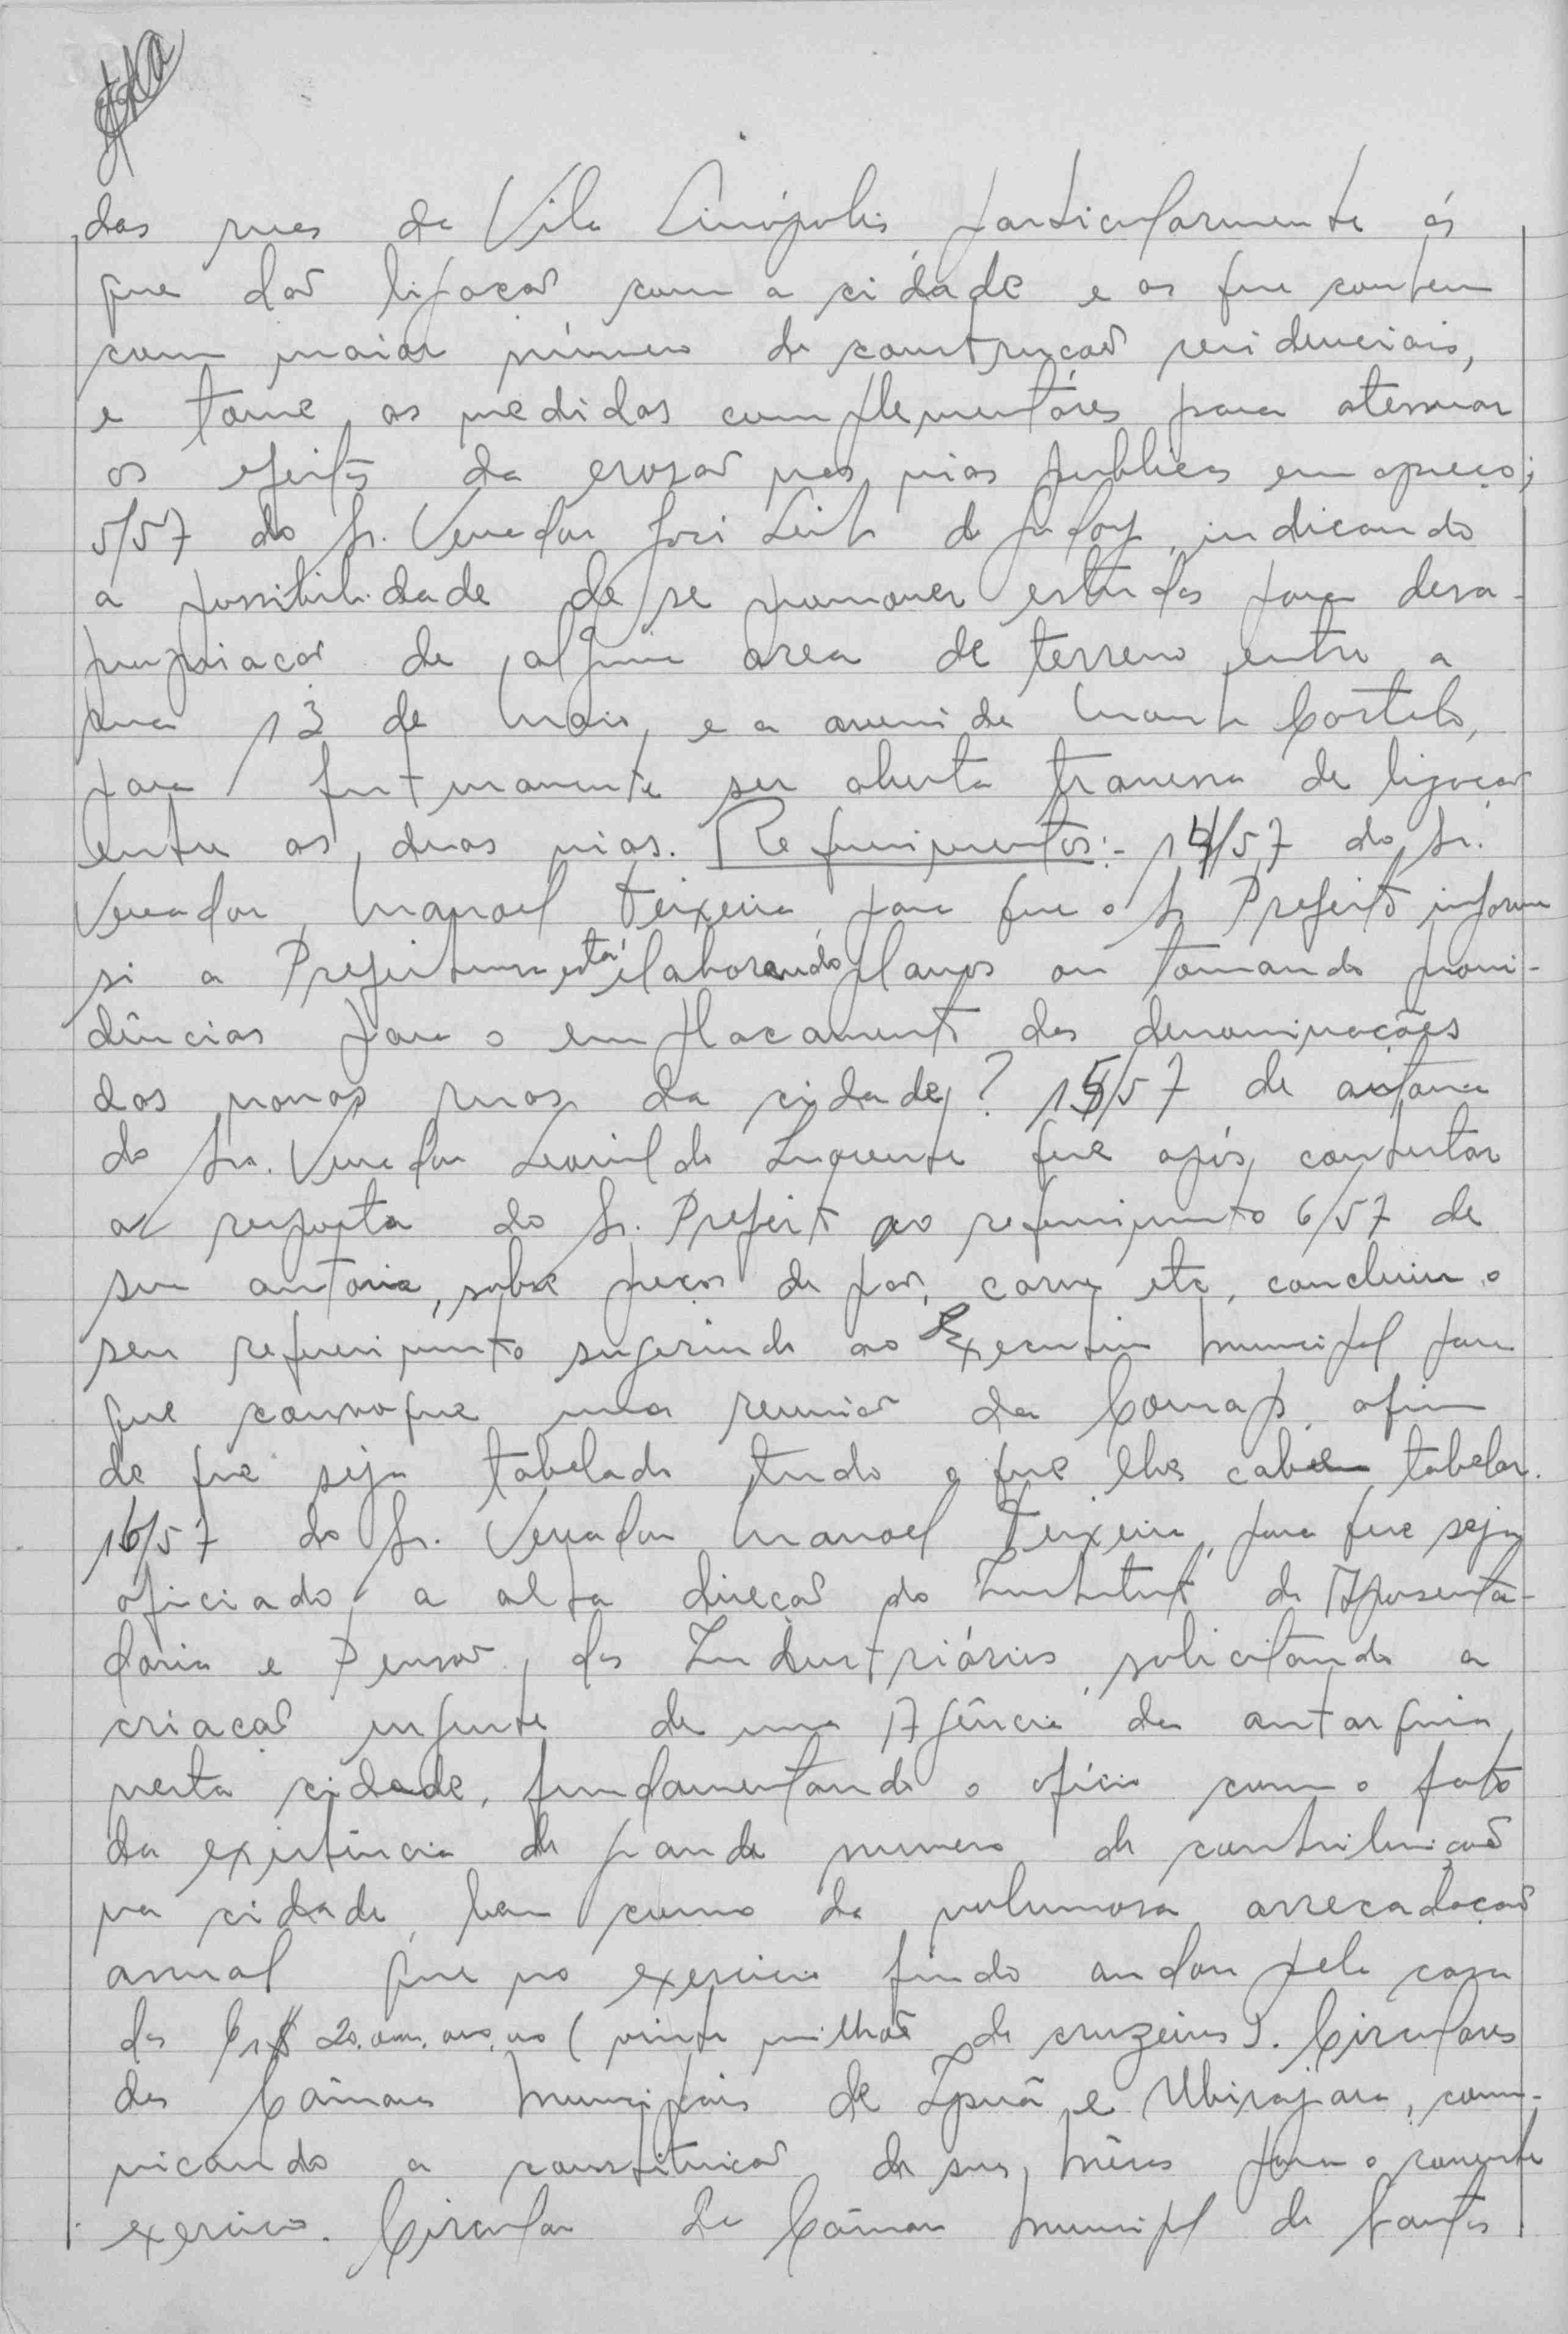 das ruas da Vila Linópolis particularmente ás
que dão ligação com a cidade e as que contem
com maior número de construções residenciais,
e tome as medidas complementáres para atenuar
os efeitos da erosão nas vias publicas em apreço;
5/57 do Sr. Vereador José Leite de Godoy, indicando
a possibilidade de se promover estudos para desa-
propriação de alguma area de terreno entre a
rua 13 de Maio, e a avenida Monte Castelo,
para futuramente ser aberta travessa de ligação
entre as duas vias. Requerimentos:- 14/57 do Sr.
Vereador Manoel Teixeira para que o Sr Prefeito informe
si a Prefeitura está elaborando planos ou tomando provi-
dências para o emplacamento das denominações
das novas ruas da cidade? 15/57 de autoria
do Snr. Vereador Leovildo Luarente que após contestar
a resposta do Sr. Prefeito ao requerimento 6/57 de
sua autoria, sobre preços de pão, carne etc, concluiu o
seu requerimento sugerindo ao Executivo Municipal para
que convoque uma reunião da Comap, afim
de que seja tabelado tudo o que lhes cabem tabelar.
16/57 do Sr. Vereador Manoel Teixeira, para que seja
oficiado a alta direção do Instituto de Aposenta-
doria e Pensão dos Industriários solicitando a
criação urgente de uma Agência da autarquia
nesta cidade, fundamentando o ofício com o fato
da existência de grande numero de contribuições
na cidade, bem como da volumosa arrecadação
anual que no exercicio findo andou pela casa
dos Cr$ 20.000.000,00 (vinte milhões de cruzeiros). Circulares
das Câmaras Municipais de Ipuã e Ubirajara, comu-
nicando a constituição de suas Mêsas para o corrente
exercicio. Circular da Câmara Municipal de Santos